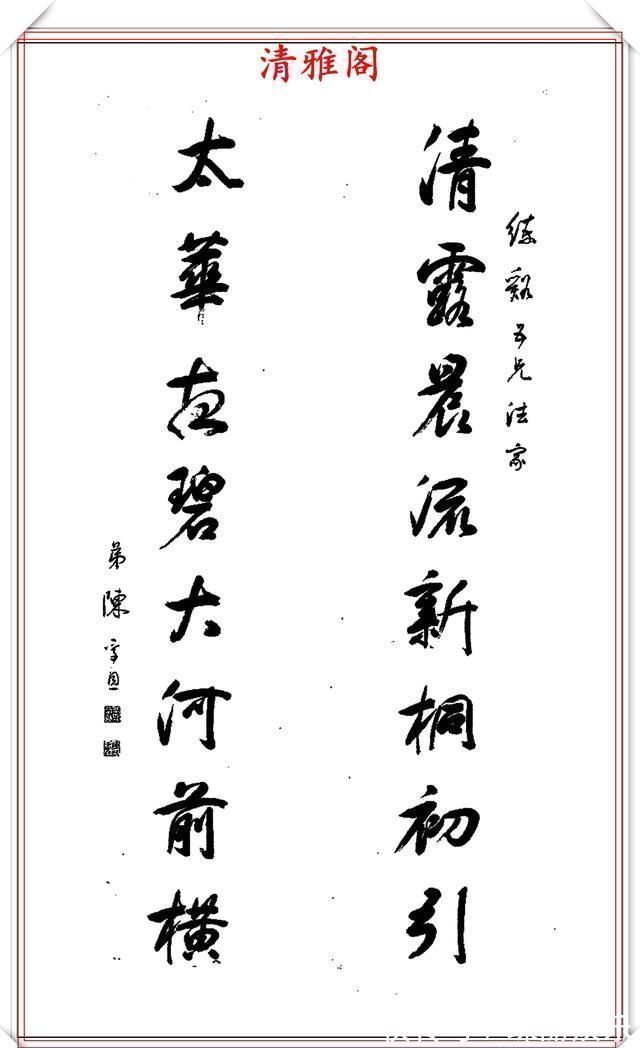 清雅阁
練谿五兄法家
清露晨流新桐初引
太華夜碧大河前横
弟陳孚恩